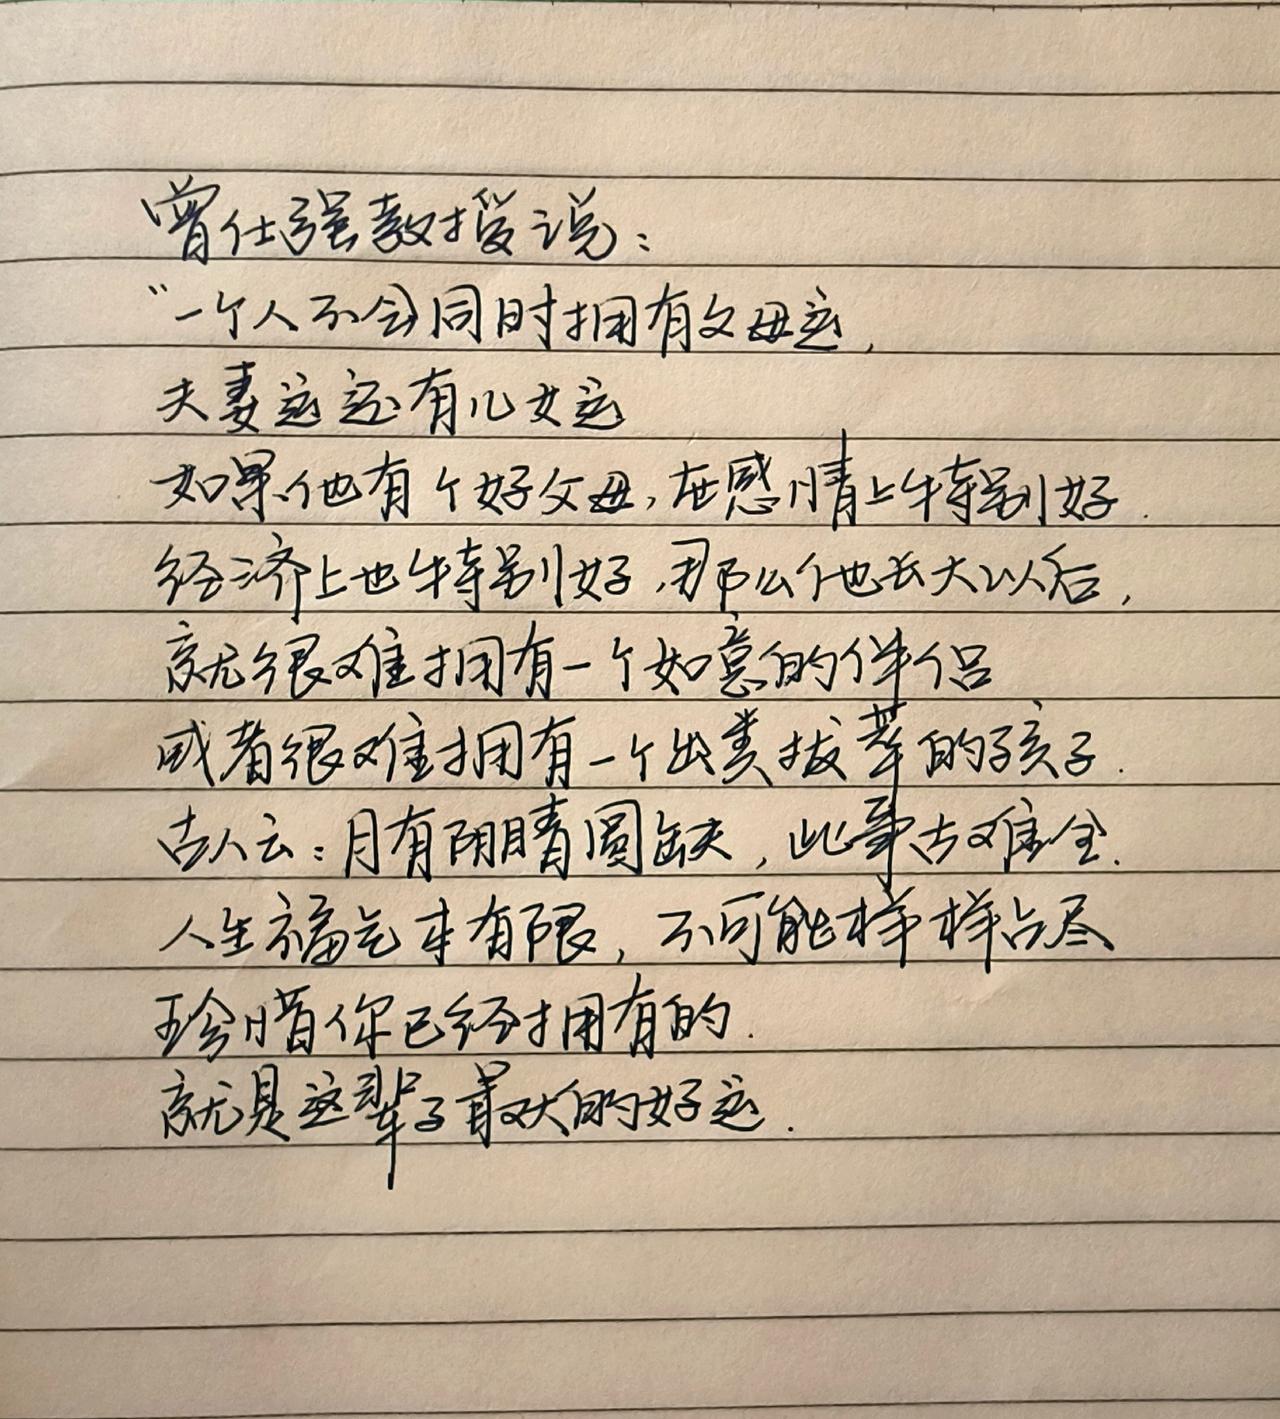 曾仕强教授说：
“一个人不会同时拥有父母运，
夫妻运还有儿女运
如果他有个好父母，在感情上特别好．
经济上也特别好，那么他长大以后，
就很难拥有一个如意的伴侣
或者很难拥有一个出类拔萃的孩子．
古人云：月有阴晴圆缺，此事古难全．
人生福气本有限，不可能样样占尽
珍惜你已经拥有的．
就是这辈子最大的好运．